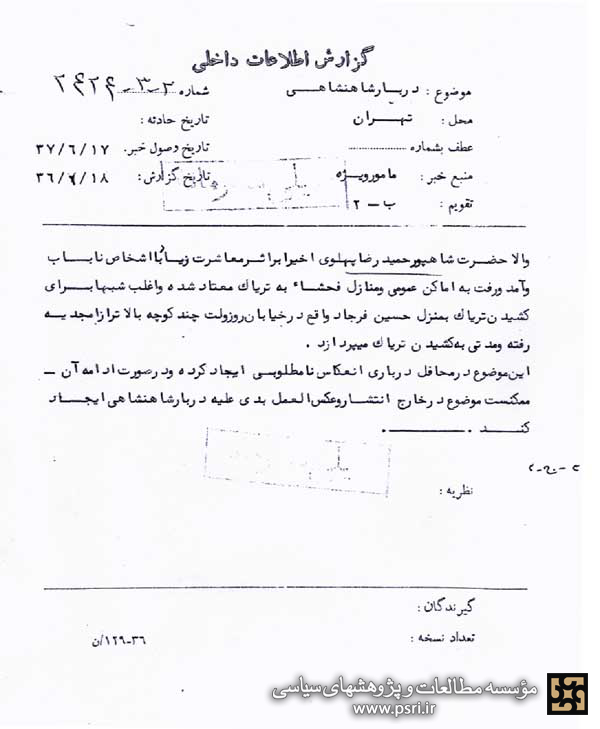 گزارش اطلاعات داخلی
موضوع : دربارشاهنشاهی
شماره
محل : تهران
تاریخ حادثه :
عطف بشماره
تاریخ وصول خبر. ۳۷/۶/۱۷
منبع خبر : مامورویژه
تاریخ گزارش: ۳۶/۶/۱۸
تقویم : ب – ۲
والاحضرت شاهپورحمیدرضاپهلوی اخیرا براثرمعاشرت زیاد با اشخاص ناباب
وآمدورفت به اماکن عمومی ومنازل فحشاء به تریاک معتادشده واغلب شبهابرای
کشیدن تریاك بمنزل حسین فرجاد واقع درخیابان روزولت چندکوچه بالاترازامجدیه
رفته ومدتی به کشیدن تریاك میپردازد .
این موضوع درمحافل درباری انعکاس نامطلوبی ایجادکرده ودرصورت ادامه آن –
ممکنست موضوع درخارج انتشاروعکس العمل بدی علیه دربارشاهنشاهی ایجاد
کند .
نظریه :
گیرندگان :
تعداد نسخه :
۱۲۹-۳۶/ن
مؤسسه مطالعات و پژوهشهای سیاسی
www.psri.ir